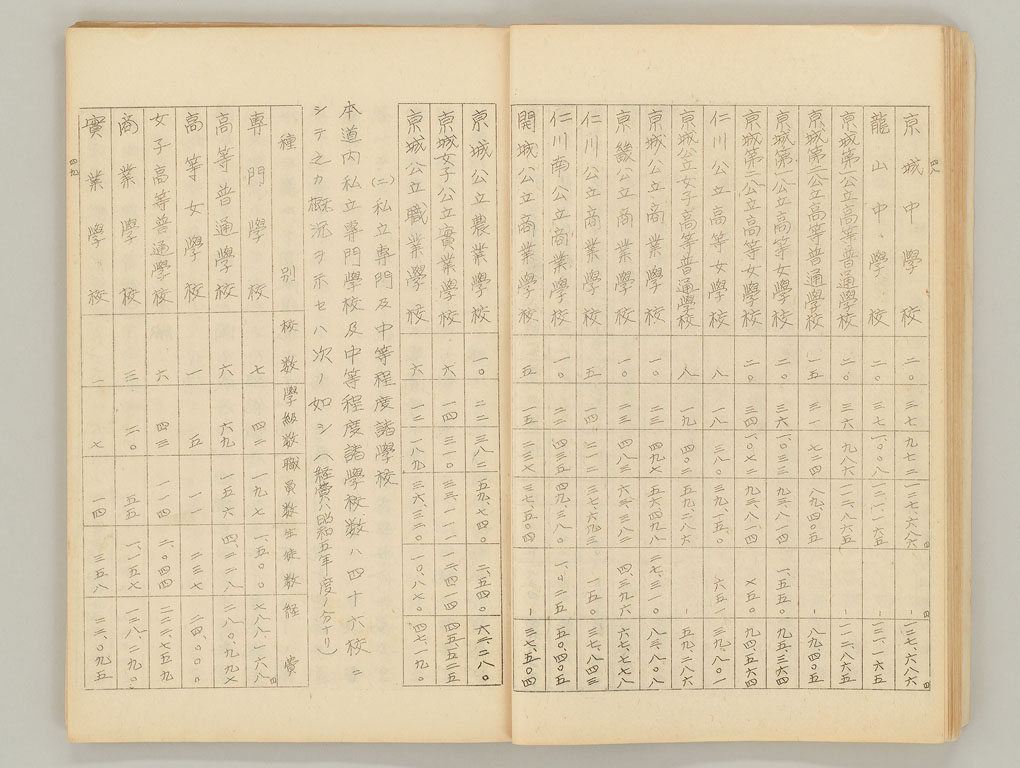 四八
京城中學校 二〇 三七 九七二 一三七、六八六円 - 一三七、六八六円
龍山中學校 二〇 三七 一、〇〇八 一三一、一六五 - 一三一、一六五
京城第一公立高等普通學校 二〇 三六 九八六 一一二、八六五 - 一一二、八六五
京城第二公立高等普通學校 一五 三一 七三四 八九、四〇五 - 八九、四〇五
京城第一公立高等女學校 二〇 三六 一、〇三三 九三、八一四 一、五五〇 九五、三六四
京城第二公立高等女學校 二〇 三四 一、〇七二 九三、八一四 七五〇 九四、五六四
仁川公立高等女學校 八 一八 三八〇 三九、一五〇 六五一 三九、八〇一
京城公立女子高等普通學校 八 一九 四〇二 五九、二八六 - 五九、二八六
京城公立商業學校 一〇 二三 四九七 五六、四九八 二七、三一〇 八三、八〇八
京畿公立商業學校 一〇 二三 四八三 六三、三八二 四、三九六 六七、七七八
仁川公立商業學校 五 一四 二一二 三七、六九三 一五〇 三七、八四三
仁川南公立商業學校 一〇 二二 四三五 四九、三八〇 一、〇二五 五〇、四〇五
開城公立商業學校 五 一五 二三七 三七、五〇四 - 三七、五〇四
京城公立農業學校 一〇 二二 三八二 五九、七四〇 二、五四〇 六二、二八〇
京城女子公立實業學校 六 一四 三一〇 三三、一一一 一二、四一四 四五、五二五
京城公立職業學校 六 一二 一八九 三六、三二〇 一〇、八七〇 四七、一九〇
(二)私立專門及中等程度諸學校
本道內私立專門學校及中等程度諸學校数ハ四十六校ニ
シテ之カ概況ヲ示セハ次ノ如シ(経費ハ昭和五年度ノ分ナリ)
種別 校数 學級数 職員数 生徒数 経費
專門學校 七 四二 一九七 一、五〇〇 七八八、一六八円
高等普通學校 六 六九 一五六 四、二二八 二八〇、九九七
高等女學校 一 五 一一 二三七 一四、〇〇〇
女子高等普通學校 六 四三 一一四 二、〇四四 二二二、七五九
商業學校 三 二〇 五五 一、一五七 一二八、二九〇
實業學校 二 七 一四 三五八 二二、〇九五
四九